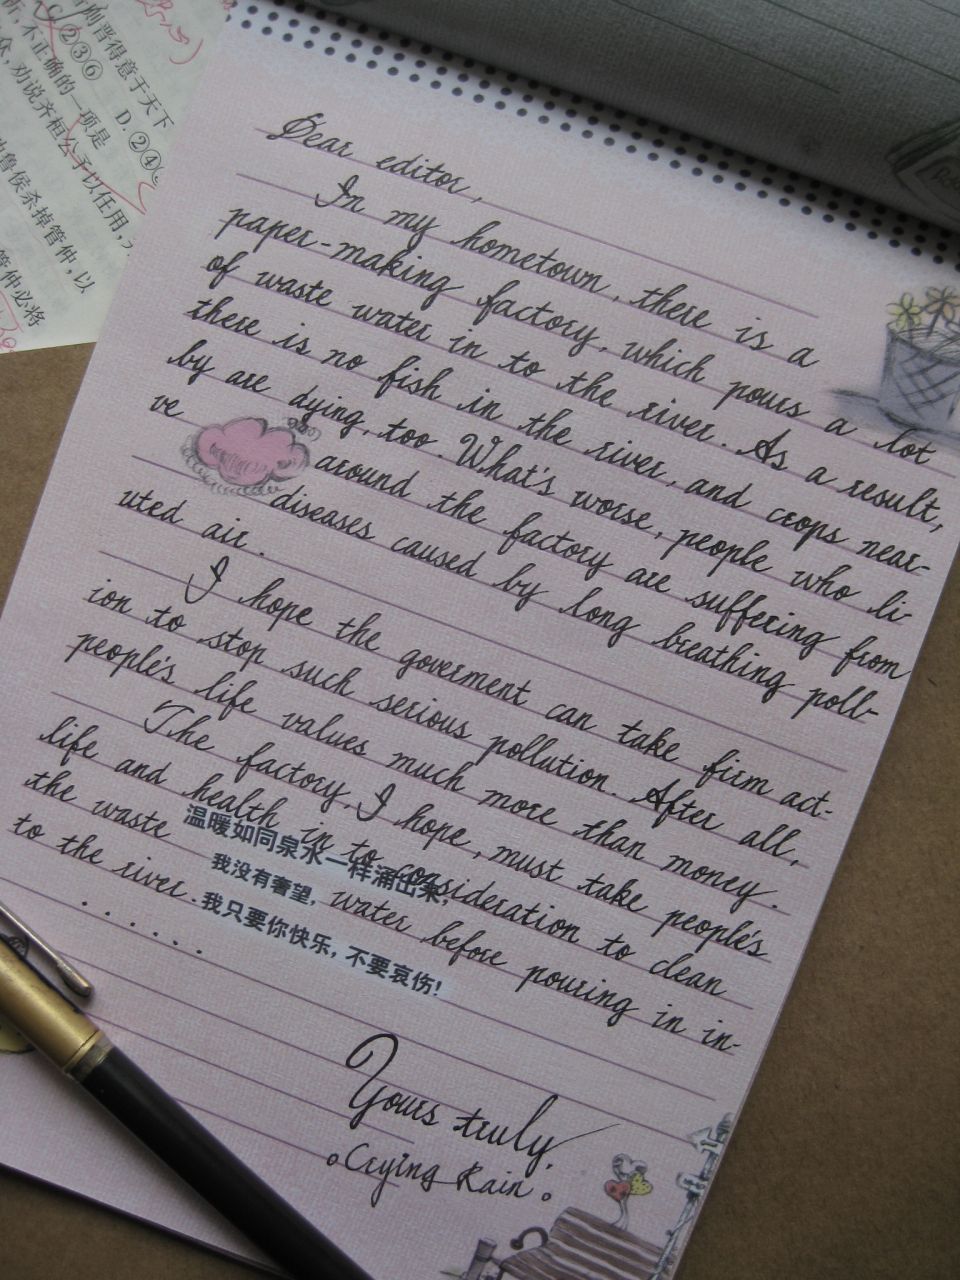 Dear editor,
In my hometown, there is a
paper-making factory, which pours a lot
of waste water in to the river. As a result,
there is no fish in the river, and crops near-
by are dying, too. What's worse, people who li-
ve around the factory are suffering from
diseases caused by long breathing poll-
uted air.
I hope the goverment can take firm act-
ion to stop such serious pollution. After all,
people's life values much more than money.
The factory, I hope, must take people's
life and health in to consideration to clean
the waste water before pouring in in-
to the river.
......
温暖如同泉水一样涌出来,
我没有奢望,
我只要你快乐,不要哀伤!
Yours truly,
Crying Rain
则晋得意于天下
②③⑥ D.②④
不正确的一项是
劝说齐桓公予以任用,
鲁侯杀掉管仲,以
管仲必将